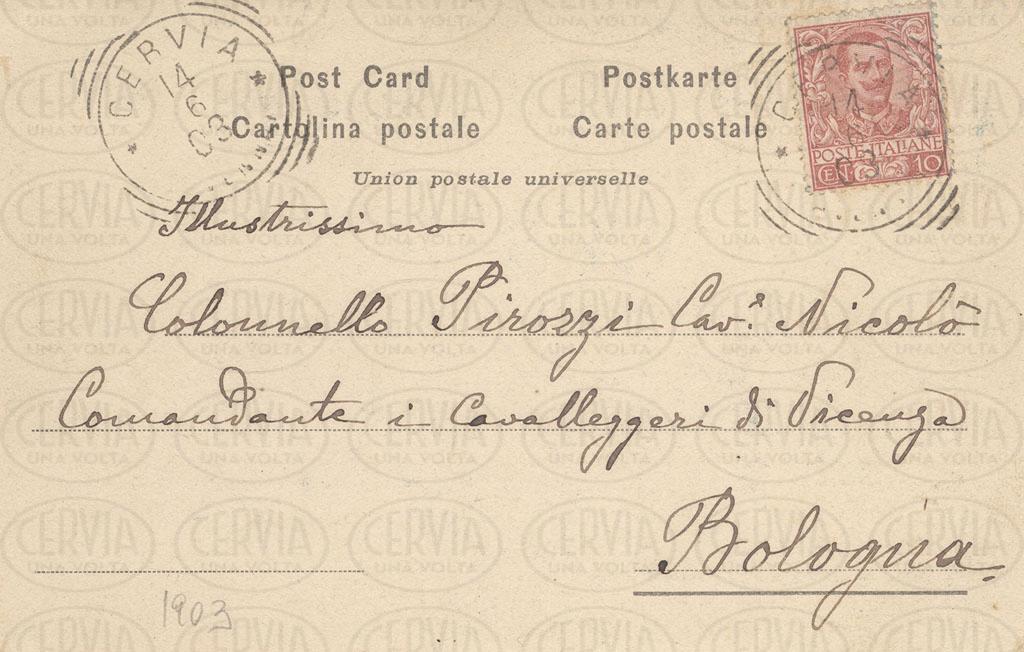 CERVIA
14 6 03
Post Card Postkarte
Cartolina postale Carte postale
Union postale universelle
POSTE ITALIANE
CEN. 10
Illustrissimo
Colonnello Piroszi Cav.e Nicolò
Comandante i Cavalleggeri di Vicenza
Bologna
1903
CERVIA
UNA VOLTA